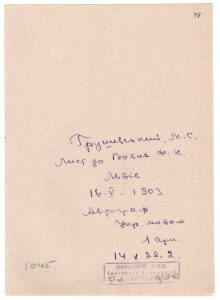 48
Грушевський, М.С.
Лист до Вовка Ф. К.
Львів
16. V - 1903
Автограф
Укр. мовою
1 арк.
14 х 22.2.
1045
НАУКОВИЙ АРХІВ